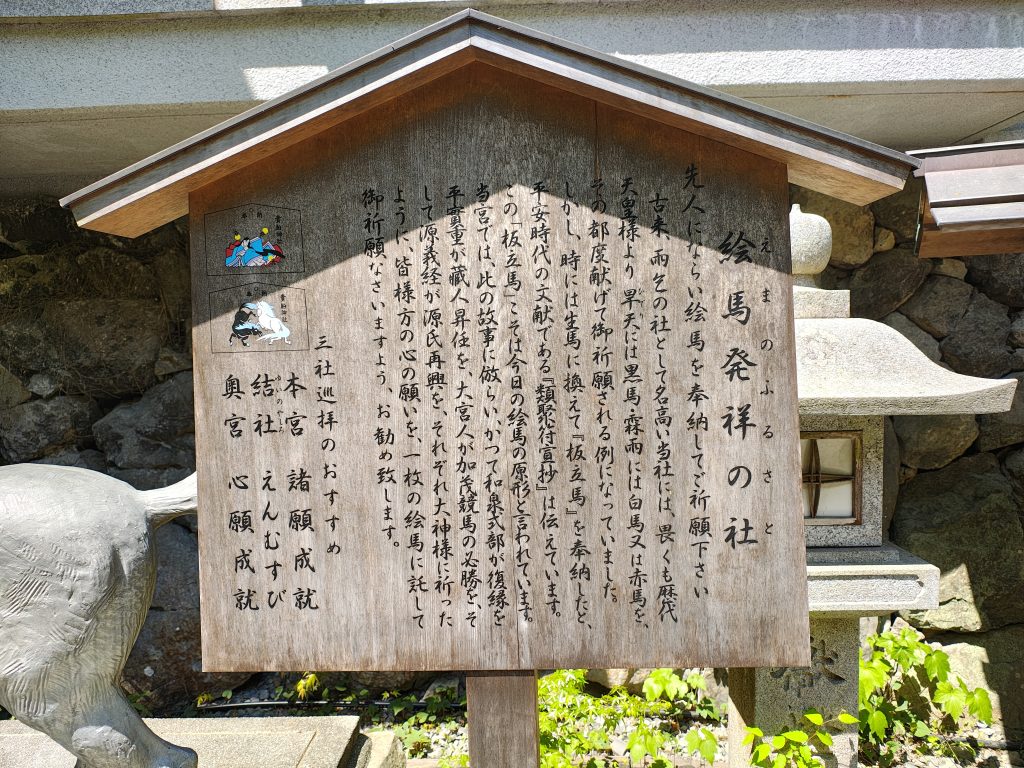 えまのふるさと
絵馬発祥の社
先人にならい絵馬を奉納してご祈願下さい
古来、雨乞の社として名高い当社には、畏くも歴代
天皇様より旱天には黒馬・霖雨には白馬又は赤馬を、
その都度献げて御祈願される例になっていました。
しかし、時には生馬に換えて『板立馬』を奉納したと、
平安時代の文献である『類聚符宣抄』は伝えています。
この「板立馬」こそは今日の絵馬の原形と言われています。
当宮では、此の故事に倣らい、かつて和泉式部が復縁を
平實重が蔵人昇任を、大宮人が加茂競馬の必勝を、そ
して源義経が源氏再興を、それぞれ大神様に祈った
ように、皆様方の心の願いを、一枚の絵馬に託して
御祈願なさいますよう、お勧め致します。
三社巡拝のおすすめ
本宮 諸願成就
結社 えんむすび
奥宮 心願成就
貴船神社
貴船神社